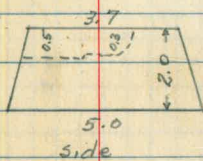 3.7
0.5 0.3 2.0
5.0
side